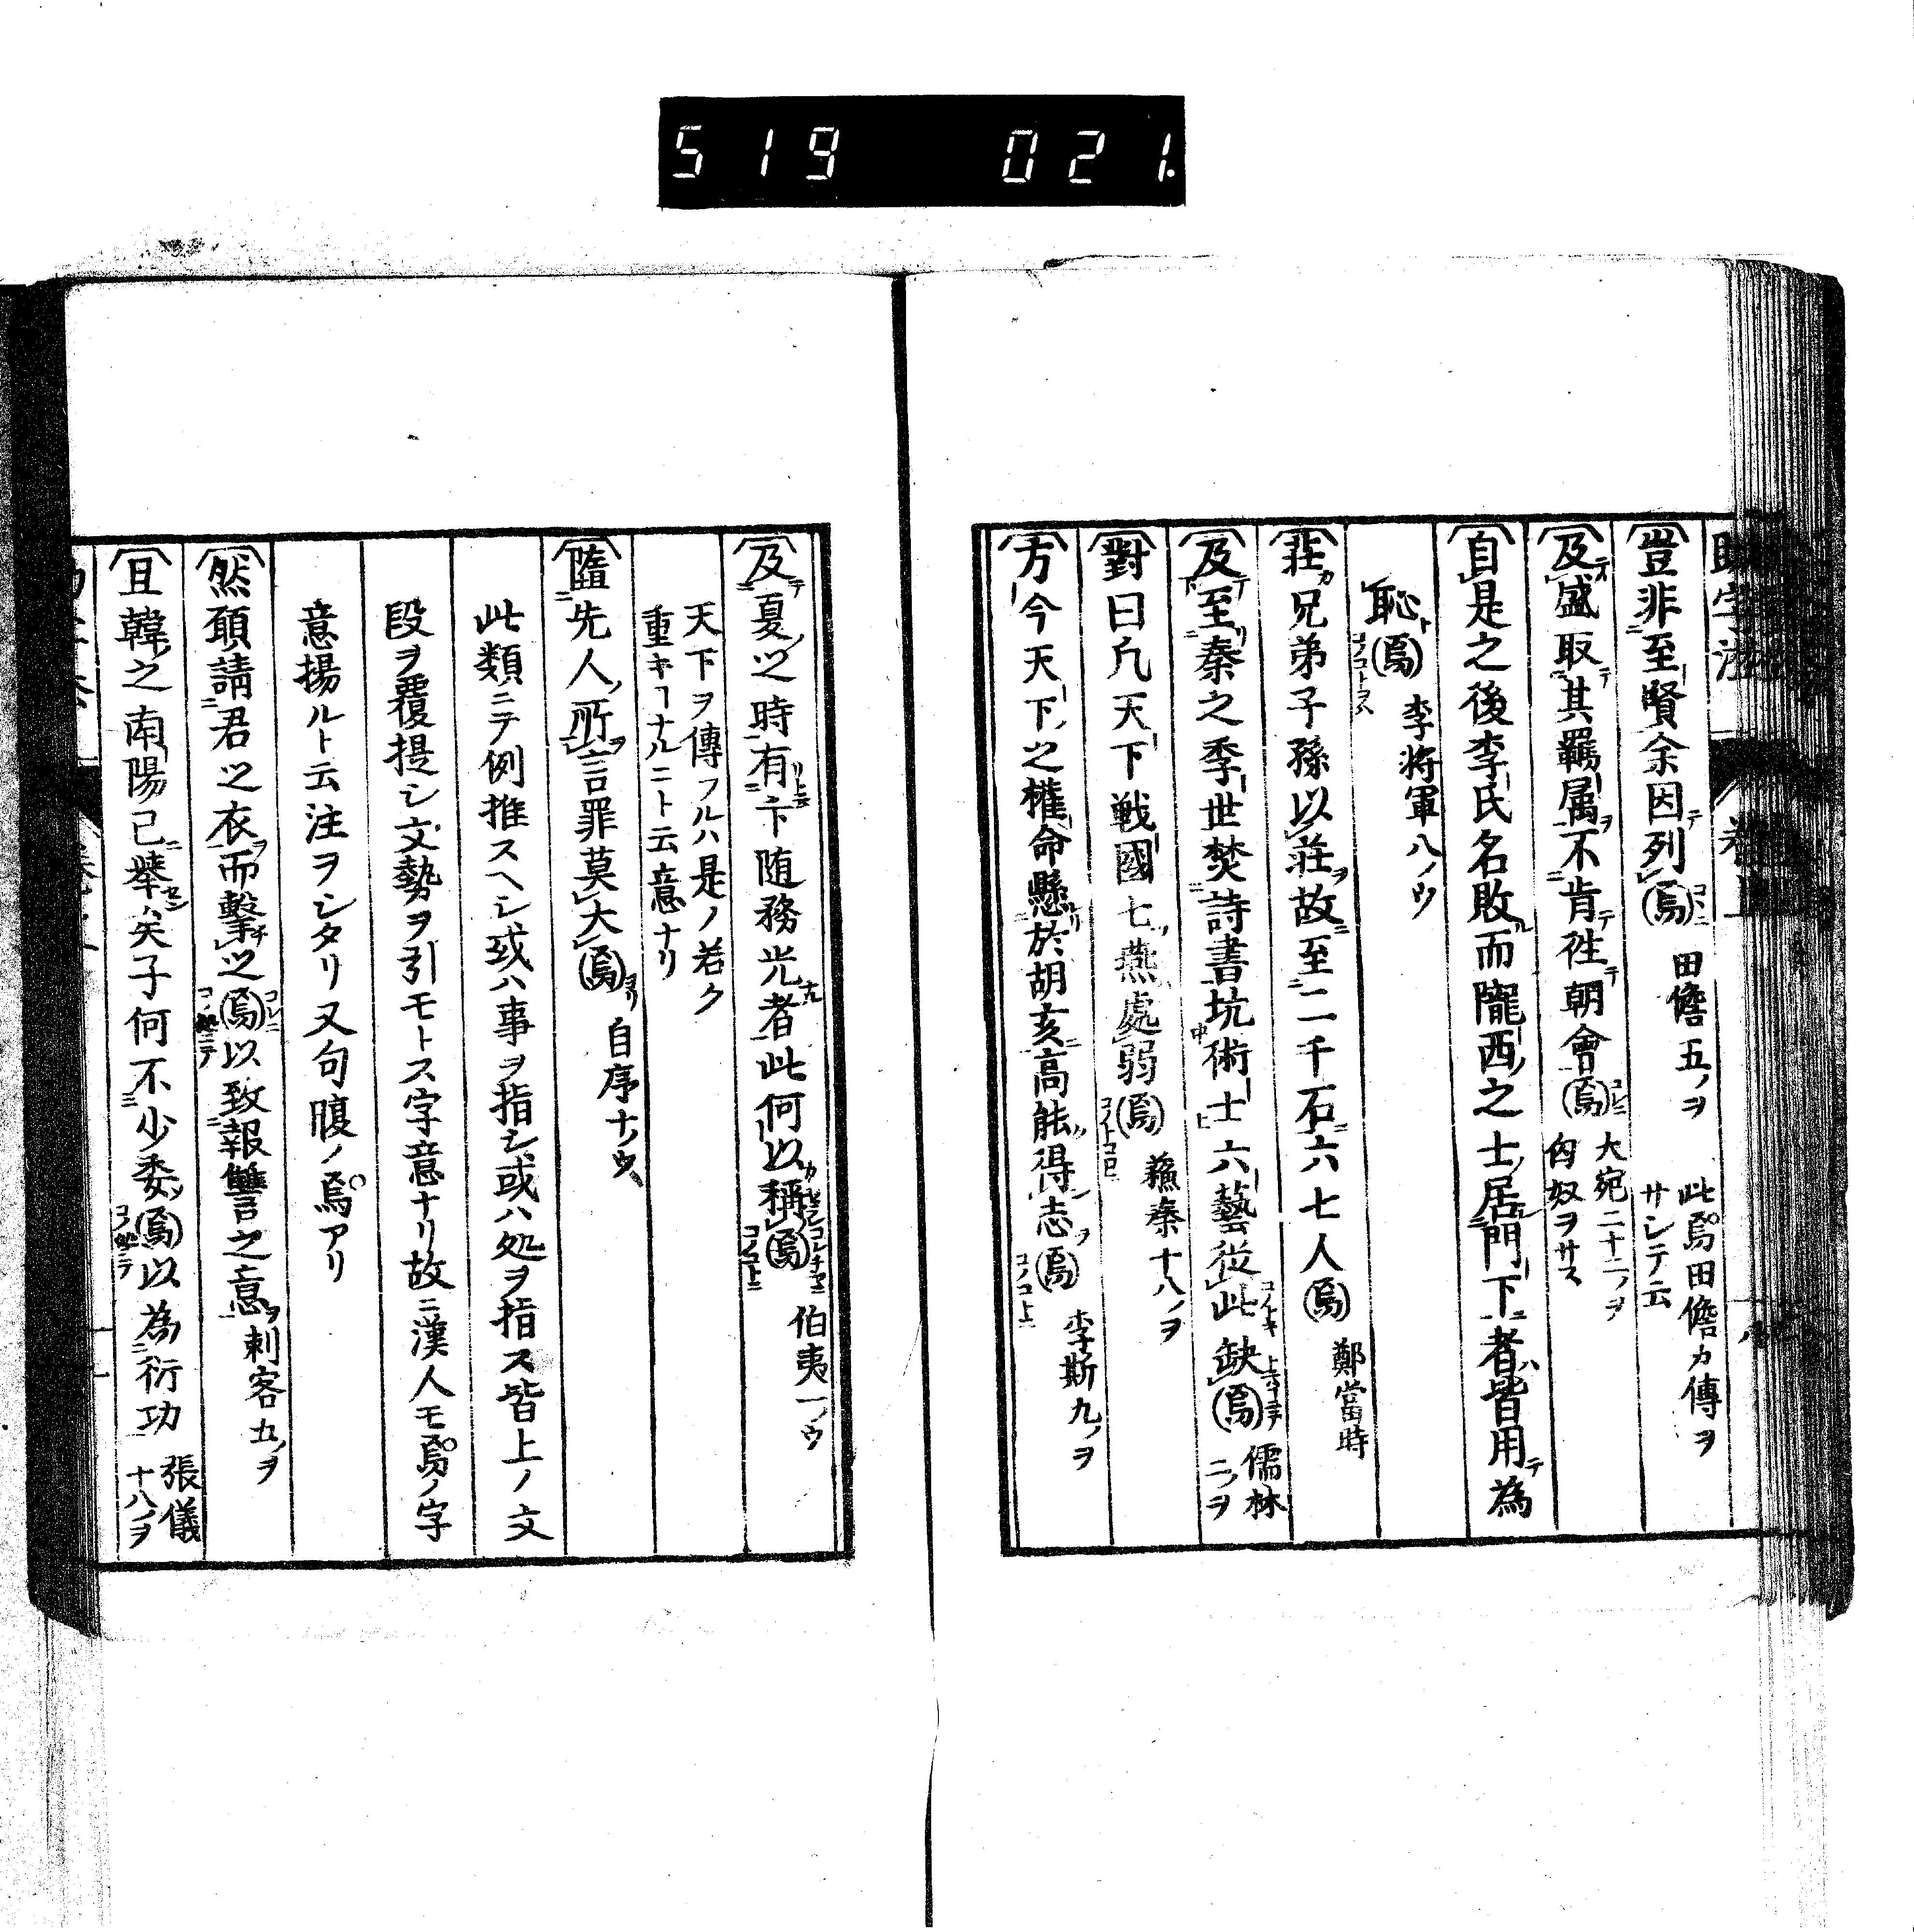 519 021.
豈非至賢余因列焉 田儋五ノヲ 此焉田儋カ傳ヲサシテ云
及盛取其羈属不肯徃朝會焉 大宛二十二ノヲ 匈奴ヲサス
自是之後李氏名敗而隴西之士居門下者皆用為
恥焉 李将軍八ノウ
莊兄弟子孫以莊故至二千石六七人焉 鄭當時
及至秦之季世焚詩書坑術士六藝從此缺焉 儒林二ノヲ
對曰凢天下戦國七燕處弱焉 蘓秦十八ノヲ
方今天下之權命懸於胡亥高能得志焉 李斯九ノヲ
及夏之時有卞随務光者此何以稱焉 伯夷一ノウ
天下ヲ傳フルハ是ノ若ク
重キヿナルニト云意ナリ
隳先人所言罪莫大焉 自序十ノウ
此類ニテ例推スヘシ或ハ事ヲ指シ或ハ処ヲ指ス皆上ノ文
段ヲ覆提シ文勢ヲ引モトス字意ナリ故ニ漢人モ焉ノ字
意揚ルト云注ヲシタリ又句腹ノ焉アリ
然願請君之衣而擊之焉以致報讐之意 刺客五ノヲ
且韓之南陽已舉矣子何不少委焉以為衍功 張儀十八ノヲ